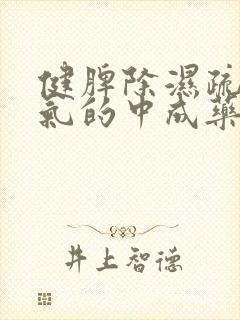 健脾除濕疏
氣的中成藥
井上智德